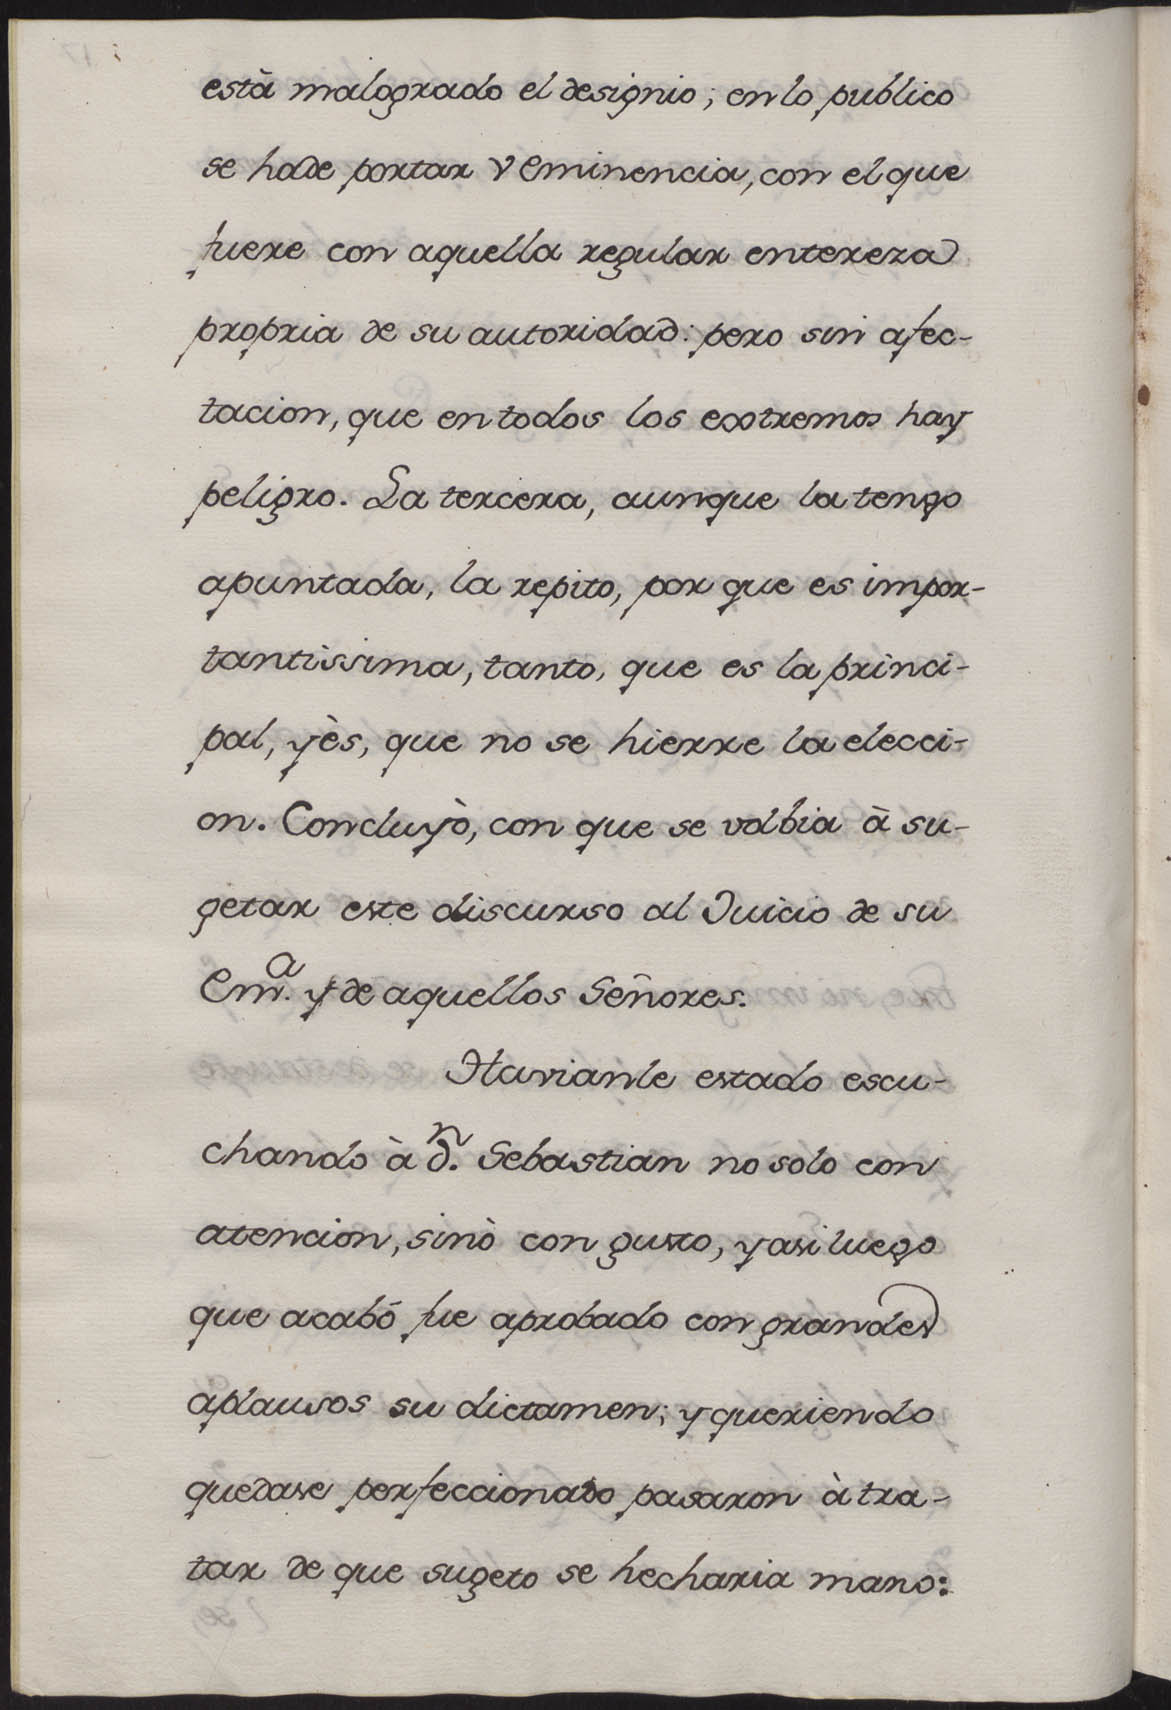 està malogrado el designio; en lo publico
se hade portar V Eminencia, con el que
fuere con aquella regular entereza
propria de su autoridad: pero sin afec-
tacion, que en todos los extremos hay
peligro. La tercera, aunque la tengo
apuntada, la repito, por que es impor-
tantissima, tanto, que es la princi-
pal, yès, que no se hierre la elecci-
on. Concluyò, con que se volbia à su-
getar este discurso al Juicio de su
Emª. y de aquellos Señores.
Havianle estado escu-
chando à Dⁿ. Sebastian no solo con
atencion, sinò con gusto, y asi luego
que acabó fue aprobado con grandes
aplausos su dictamen; y queriendo
quedase perfeccionado pasaron à tra-
tar de que sugeto se hecharia mano: